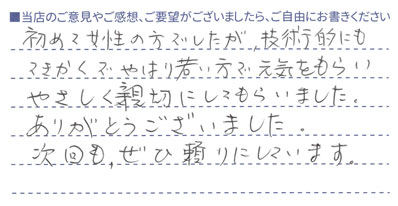 ■当店のご意見やご感想、ご要望がございましたら、ご自由にお書きください
初めて女性の方でしたが、技術的にも
てきかくでやはり若い方で元気をもらい
やさしく親切にしてもらいました。
ありがとうございました。
次回も、ぜひ頼りにしています。